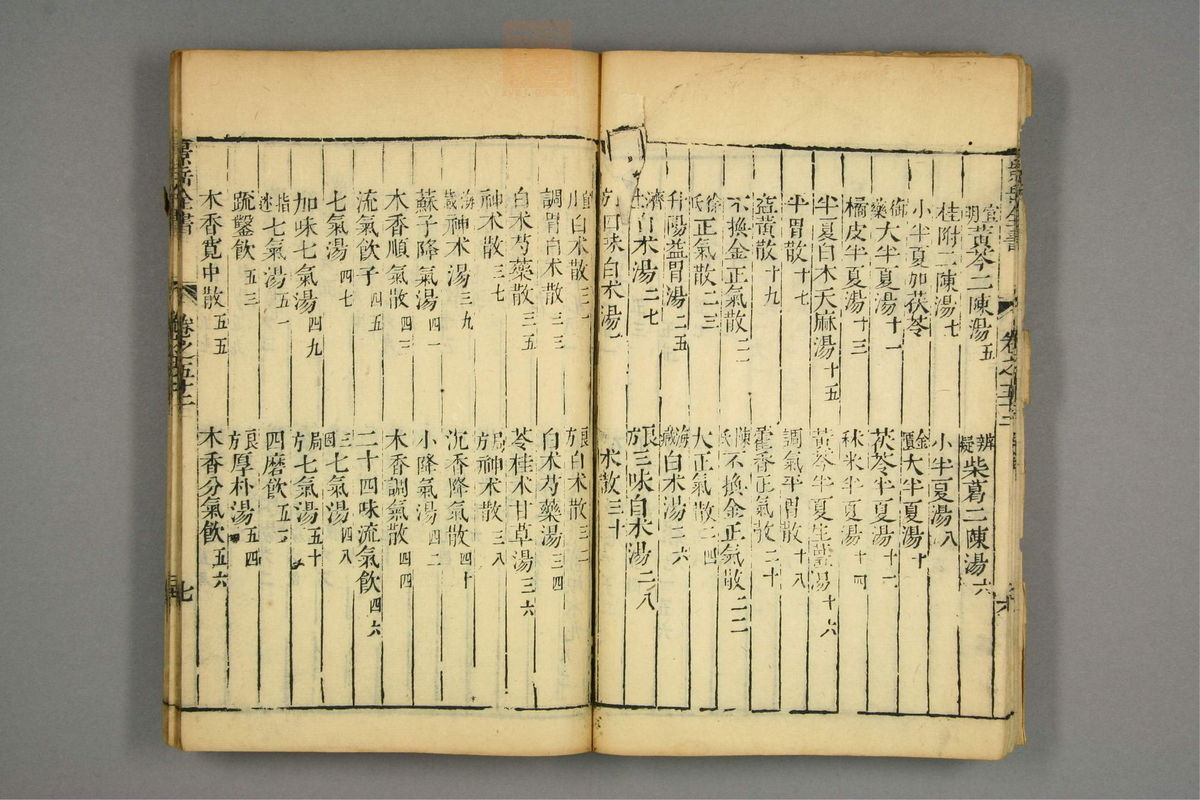 黃芩二陳湯五 辨疑柴葛二陳湯六
桂附二陳湯七 小半夏湯八
小半夏加茯苓 金匱大半夏湯十
大半夏湯十一 茯苓半夏湯十二
橘皮半夏湯十三 秫米半夏湯十四
半夏白朮天麻湯十五 黃芩半夏生薑湯十六
平胃散十七 調氣平胃散十八
十九 藿香正氣散二十
不換金正氣散二一 陳氏不換金正氣散二二
徐氏正氣散二三 大正氣散二四
升陽益胃湯二五 海藏白朮湯二六
濟生白朮湯二七 良方三味白朮湯二八
四味白朮湯 朮散三十
白朮散三一 良方白朮散三二
調胃白朮散三三 白朮芍藥湯三四
白朮芍藥散三五 苓桂朮甘草湯三六
神朮散三七 局方神朮散三八
海藏神朮湯三九 沉香降氣散四十
蘇子降氣湯四一 小降氣湯四二
木香順氣散四三 木香調氣散四四
流氣飲子四五 二十四味流氣飲四六
七氣湯四七 三因七氣湯四八
加味七氣湯四九 局方七氣湯五十
指迷七氣湯五一 四磨飲五二
疏鑿飲五三 良方厚朴湯五四
木香寬中散五五 木香分氣飲五六
景岳全書 卷之五十二 七